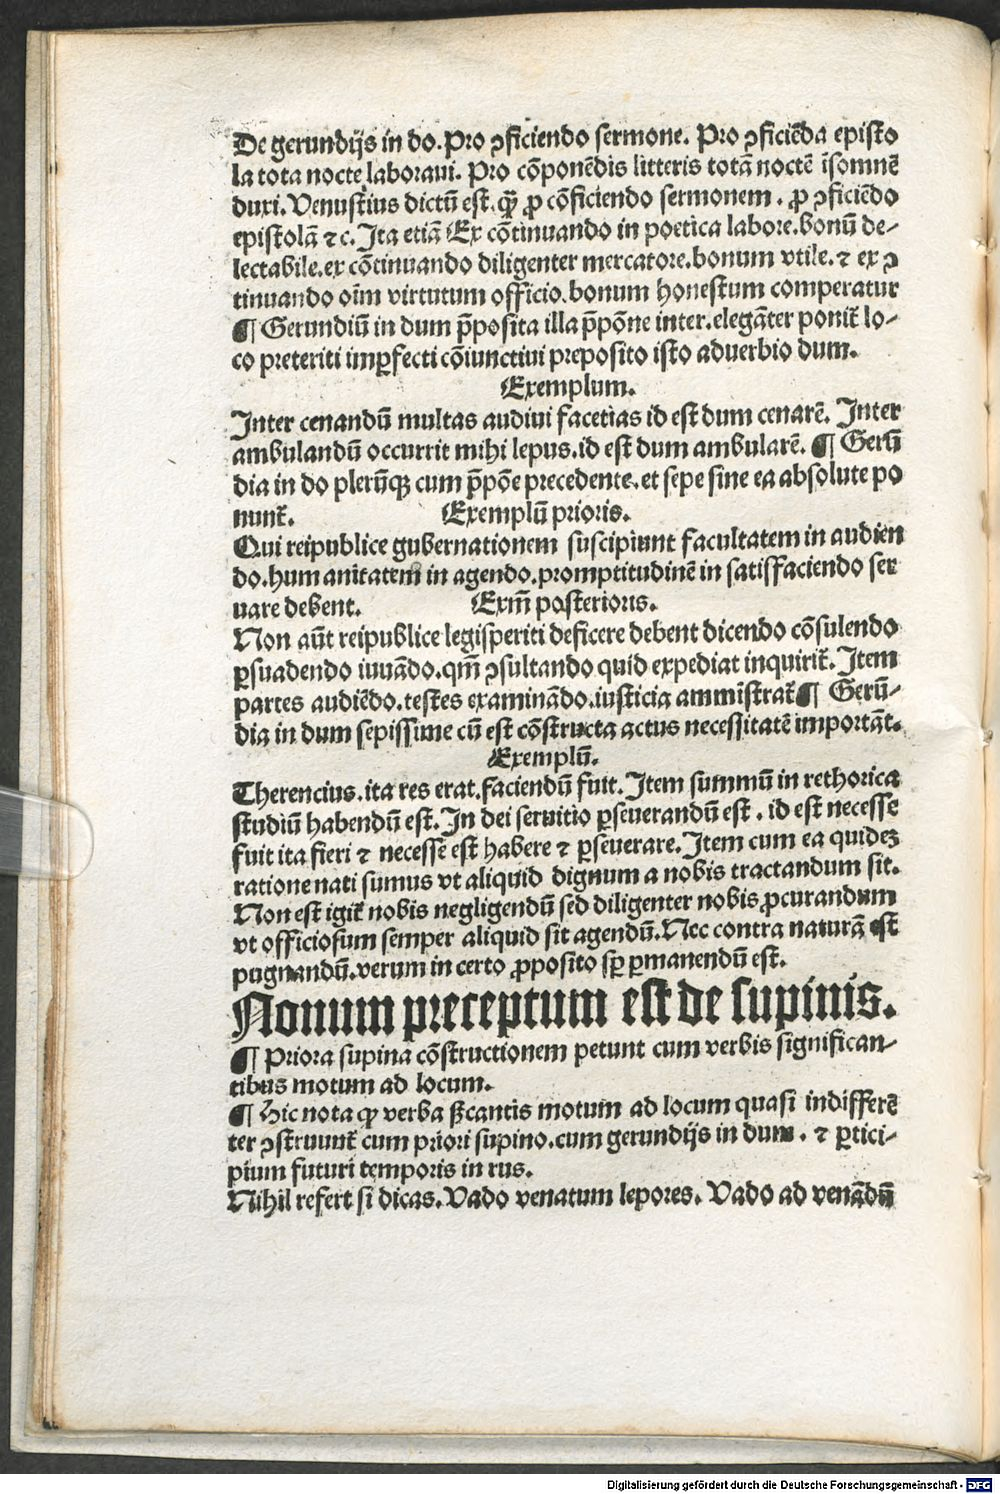 De gerundijs in do. Pro ꝯficiendo sermone. Pro ꝯficiēda episto
la tota nocte laboraui. Pro cōponēdis litteris totā noctē īsomnē
duxi. Venustius dictū est. qꝫ̄ ꝓ cōficiendo sermonem. ꝓ ꝯficiēdo
epistolā ⁊c. Ita etiā Ex cōtinuando in poetica labore. bonū de⸗
lectabile. ex cōtinuando diligenter mercatore. bonum vtile. ⁊ ex ꝯ
tinuando oīm virtutum officio. bonum honestum comperatur
¶ Gerundiū in dum p̄posita illa p̄pōne inter. elegāter ponit᷑ lo⸗
co preteriti imꝑfecti cōiunctiui preposito isto aduerbio dum.
Exemplum.
Inter cenandū multas audiui facetias id est dum cenarē. Inter
ambulandū occurrit mihi lepus. id est dum ambularē. ¶ Gerū
dia in do plerūqꝫ cum p̄pōe precedente. et sepe sine ea absolute po
nunt᷑. Exemplū prioris.
Qui reipublice gubernationem suscipiunt facultatem in audien
do. humanitatem in agendo. promptitudinē in satisfaciendo ser
uare debent. Exm̄ posterioris.
Non aūt reipublice legisperiti deficere debent dicendo cōsulendo
ꝑsuadendo iuuādo. qm̄ ꝯsultando quid expediat inquirit᷑. Item
partes audiēdo. testes examinādo. iusticia ammistrat᷑ ¶ Gerū⸗
dia in dum sepissime cū est cōstructa actus necessitatē importāt.
Exemplū.
Therencius. ita res erat. faciendū fuit. Item summū in rethorica
studiū habendū est. In dei seruitio ꝑseuerandū est. id est necesse
fuit ita fieri ⁊ necesse est habere ⁊ ꝑseuerare. Item cum ea quidez
ratione nati sumus vt aliquid dignum a nobis tractandum sit.
Non est igit᷑ nobis negligendū sed diligenter nobis ꝓcurandum
vt officiosum semper aliquid sit agendū. Nec contra naturā est
pugnandū. verum in certo ꝓposito sꝑ ꝑmanendū est.
Nonum preceptum est de supinis.
¶ Priora supina cōstructionem petunt cum verbis significan⸗
tibus motum ad locum.
¶ Hic nota ꝙ verba ẞcantis motum ad locum quasi indifferē
ter ꝯstruunt᷑ cum priori supino. cum gerundijs in dum. ⁊ ꝑtici⸗
pium futuri temporis in rus.
Nihil refert si dicas. Vado venatum lepores. Vado ad venādū
Digitalisierung gefördert durch die Deutsche Forschungsgemeinschaft - DFG